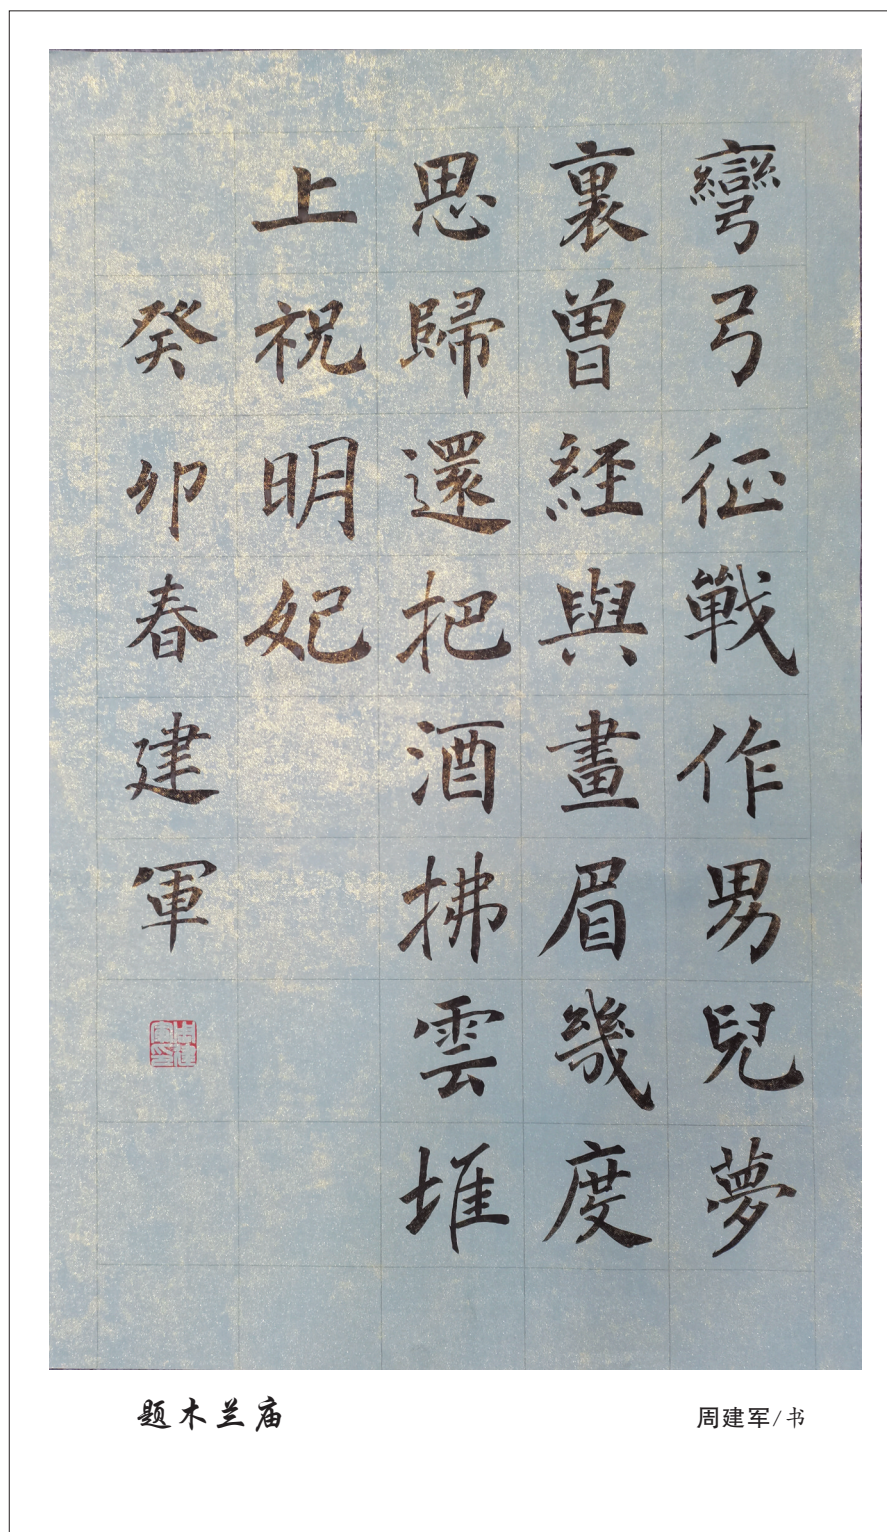 彎弓征戰作男兒夢
裏曾經與畫眉幾度
思歸還把酒拂雲堆
上祝明妃
癸卯春建軍
题木兰庙
周建军/书